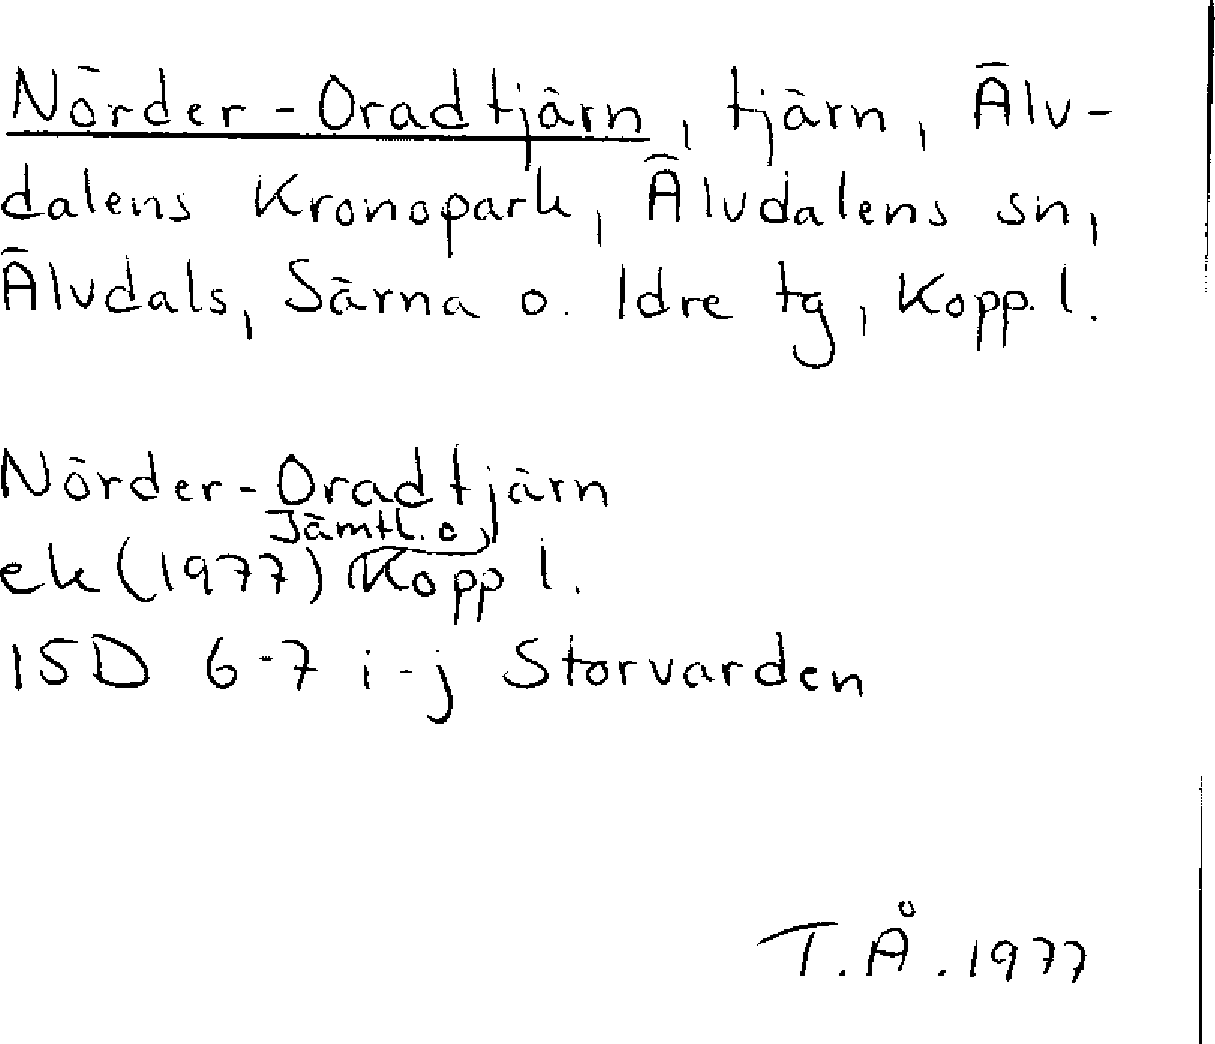 Nörder-Oradtjärn, tjärn, Älv-
dalens Kronopark, Älvdalens sn,
Älvdals, Särna o. Idre tg, Kopp. l.
Nörder-Oradtjärn
Jämtl. o
ek (1977) Kopp l.
15D 6-7 i-j Storvarden
T.Å. 1977